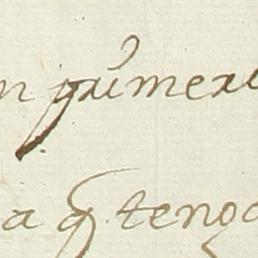 n primero
a q tengo